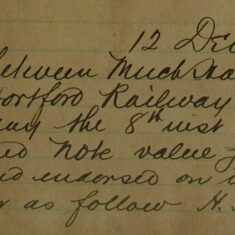 12 Dec
between Much Ha
tortford Railway
ay the 8th inst
Note value
endorsed on
as follow H.